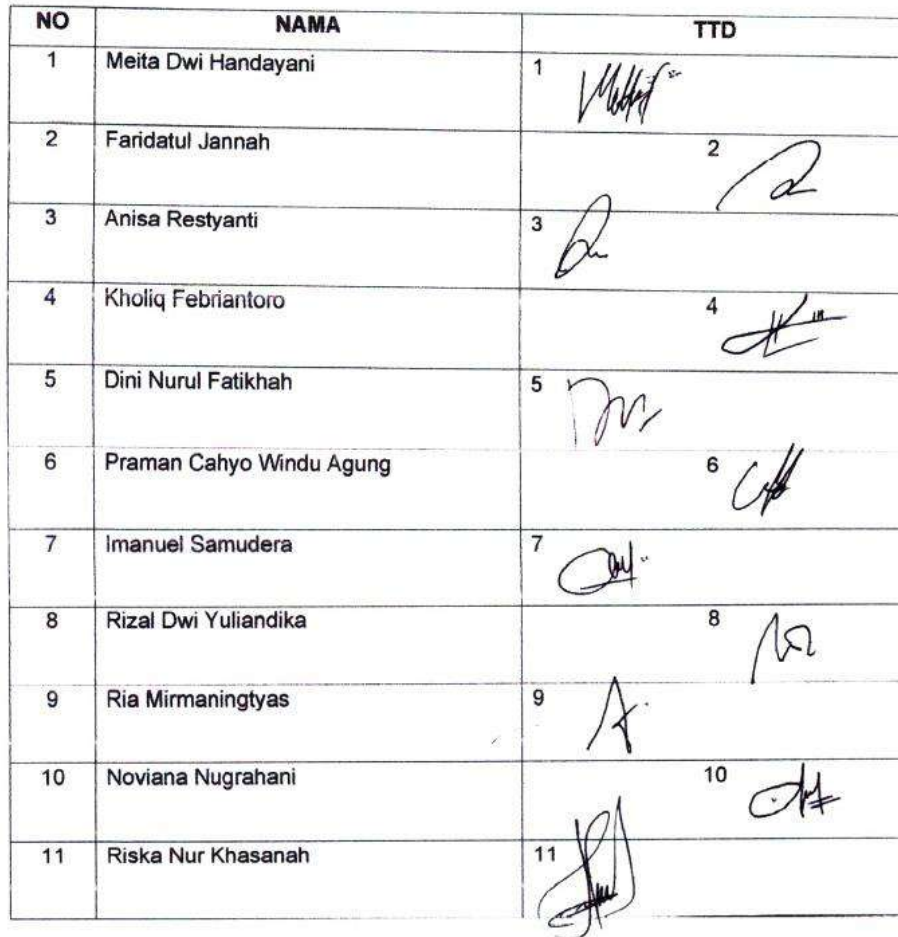 NO NAMA TTD
1 Meita Dwi Handayani 1
2 Faridatul Jannah 2
3 Anisa Restyanti 3
4 Kholiq Febriantoro 4
5 Dini Nurul Fatikhah 5
6 Praman Cahyo Windu Agung 6
7 Imanuel Samudera 7
8 Rizal Dwi Yuliandika 8
9 Ria Mirmaningtyas 9
10 Noviana Nugrahani 10
11 Riska Nur Khasanah 11